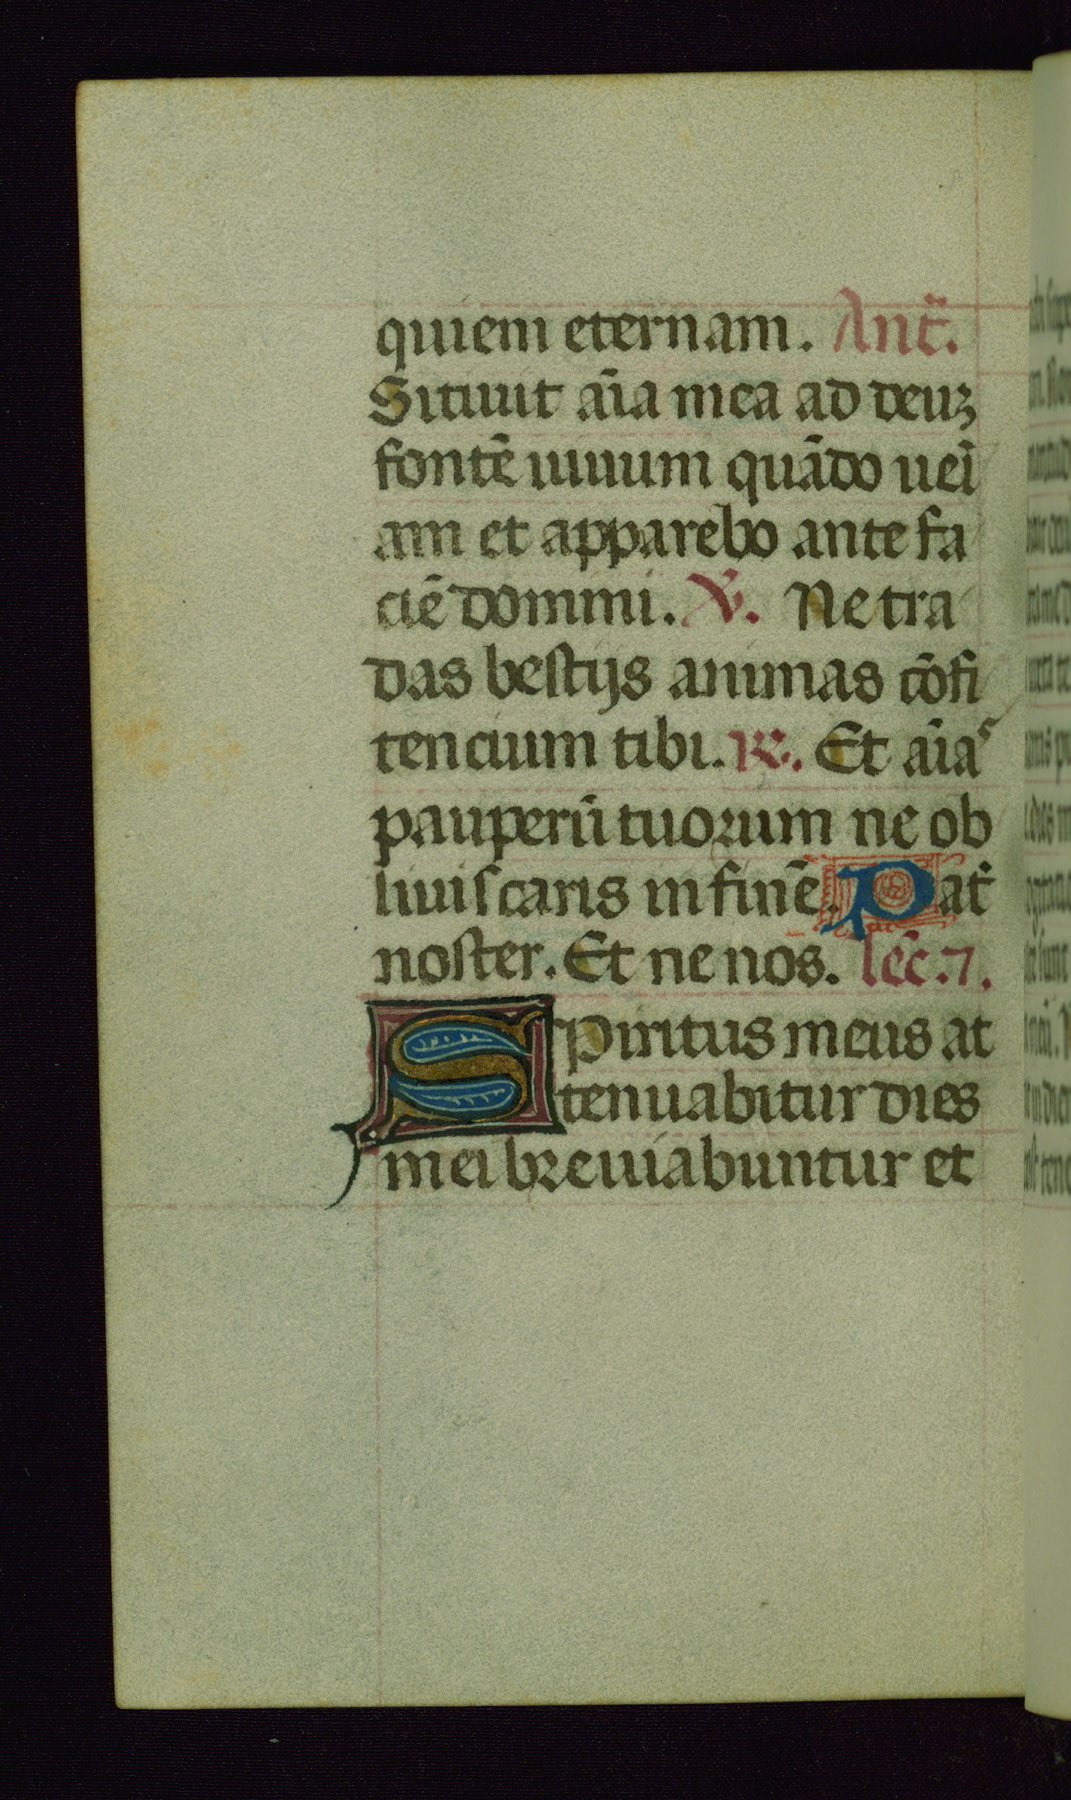 quiem eternam. Ant̄.
Sitiuit aīa mea ad deuꝫ
fontē uiuum quādo uei
am et apparebo ante fa
ciē domini. ℣. Ne tra
das bestijs animas cōfi
tencium tibi. ℟. Et aīas
pauperū tuorum ne ob
liuiscaris in finē. Pat̄
noster. Et ne nos. lec̄. 7.
Spiritus meus at
tenuabitur dies
mei breuiabuntur et